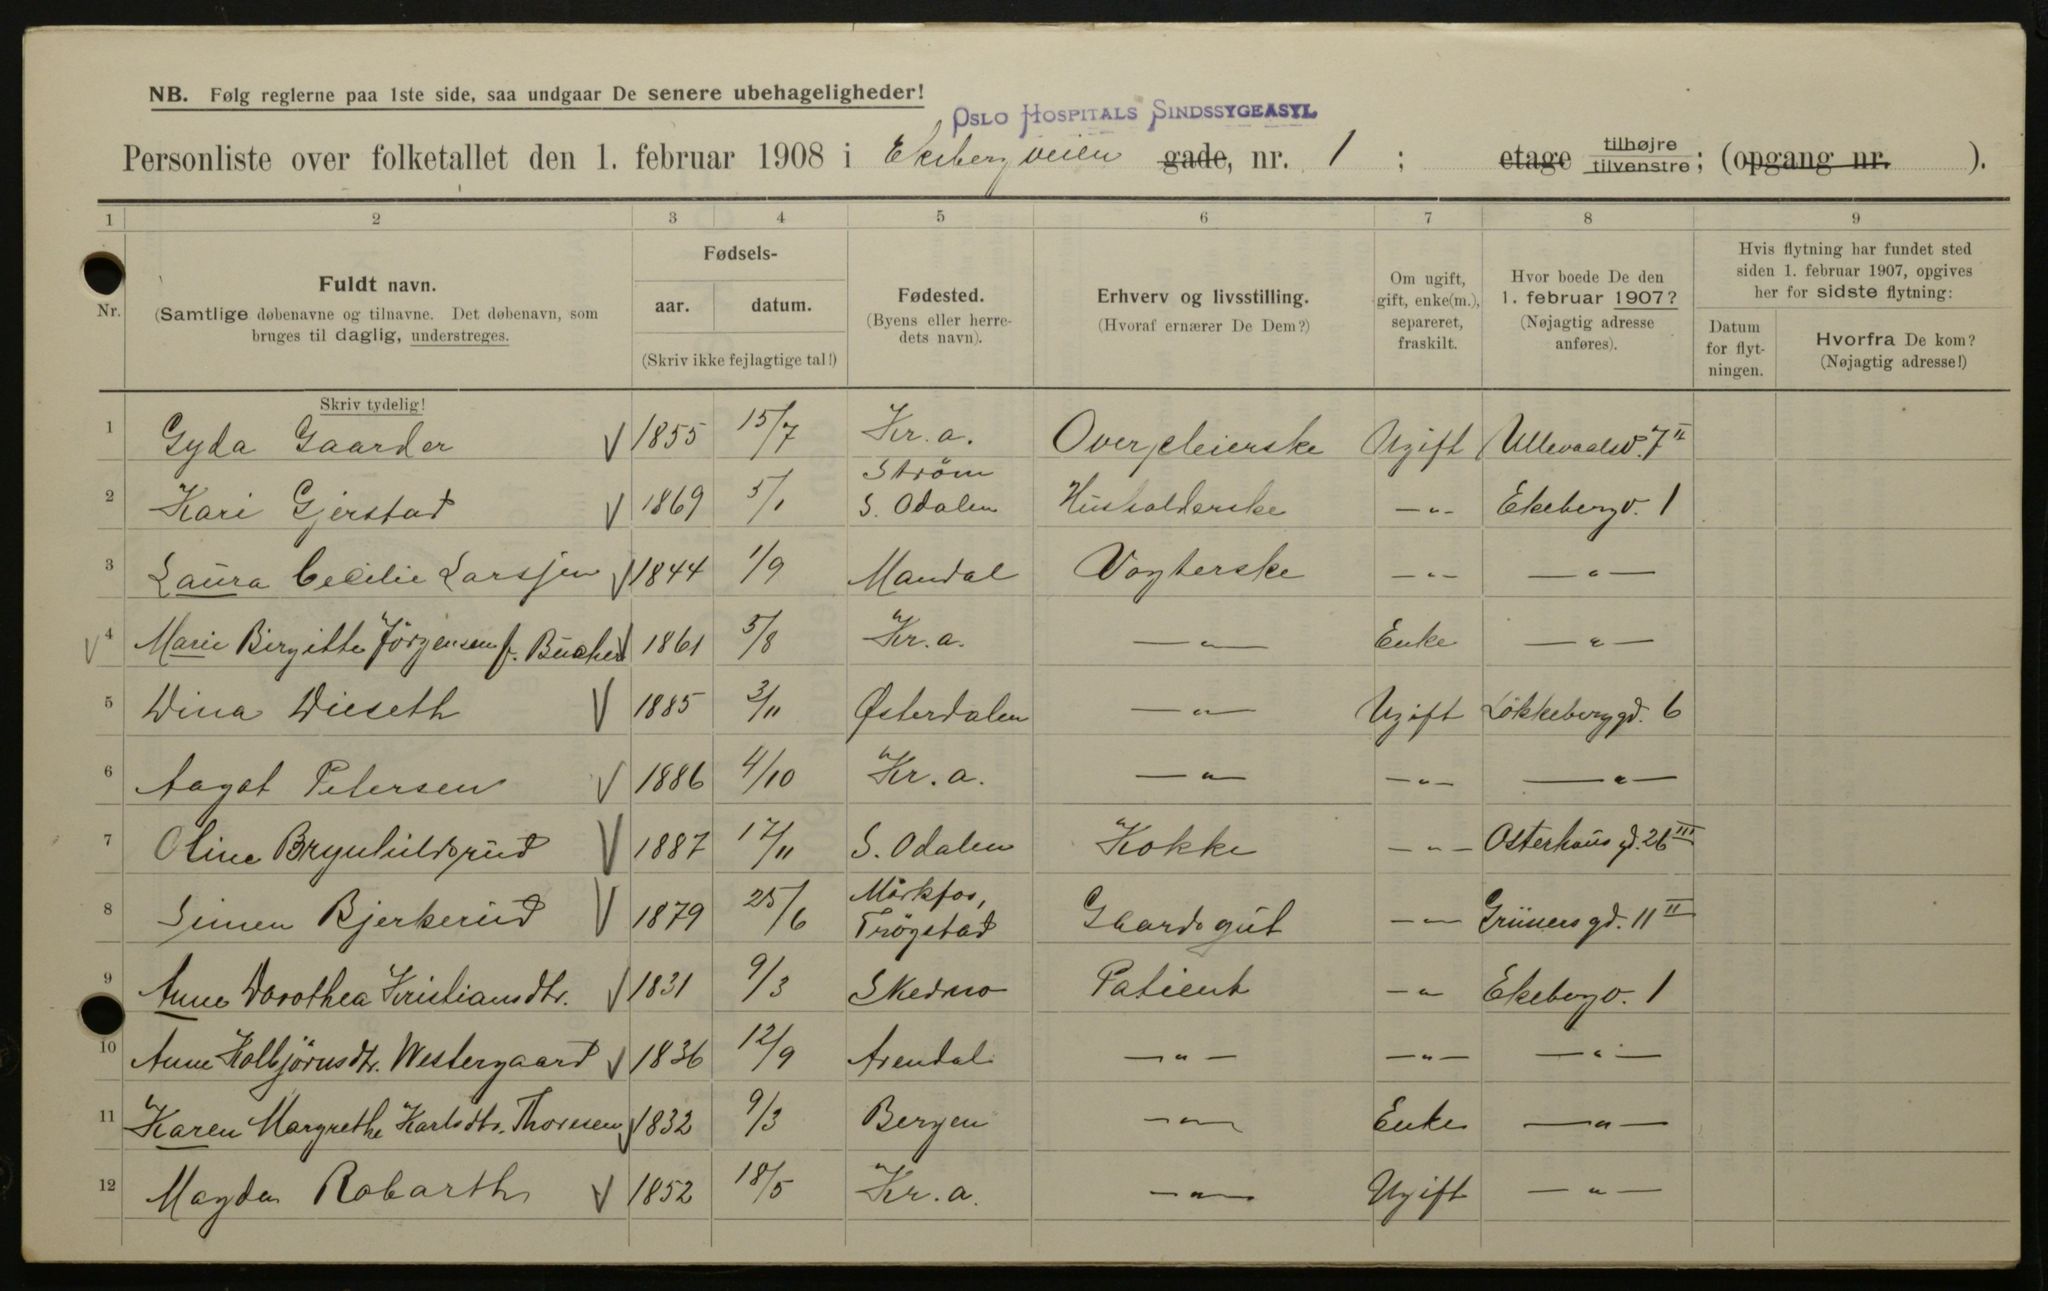 NB. Følg reglerne paa 1ste side, saa undgaar De senere ubehageligheder!
OSLO HOSPITALS SINDSSYGEASYL
Personliste over folketallet den 1. februar 1908 i Ekebergveien gade, nr. 1 ; etage tilhøjre tilvenstre; (opgang nr. ).
1 2 3 4 5 6 7 8 9
Nr.
Fuldt navn.
(Samtlige døbenavne og tilnavne. Det døbenavn, som
bruges til daglig, understreges.
Skriv tydelig!
Fødsels-
aar. datum.
(Skriv ikke fejlagtige tal!)
Fødested.
(Byens eller herre-
dets navn).
Erhverv og livsstilling.
(Hvoraf ernærer De Dem?)
Om ugift,
gift, enke(m.),
separeret,
fraskilt.
Hvor boede De den
1. februar 1907?
(Nøjagtig adresse
anføres).
Hvis flytning har fundet sted
siden 1. februar 1907, opgives
her for sidste flytning:
Datum
for flyt-
ningen.
Hvorfra De kom?
(Nøjagtig adresse!)
1 Gyda Gaarder V 1855 15/7 Kr.a. Overpleierske Ugift Ullevaalsv. 7 II
2 Kari Gjerstad V 1869 5/1 Strøm S. Odalen Husholderske —"— Ekebergv. 1
3 Laura Cecilie Larssen V 1844 1/9 Mandal Vogterske —"— —"—
V 4 Marie Birgitte Jörgensen f. Bücher V 1861 5/8 Kr.a. —"— Enke —"—
5 Dina Wieseth V 1885 3/11 Østerdalen —"— Ugift Lökkeberggd. 6
6 Aagot Petersen V 1886 4/10 Kr.a. —"— —"— —"—
7 Oline Brynhildsrud V 1887 17/11 S. Odalen Kokke —"— Osterhausgd. 26 III
8 Simen Bjerkerud V 1879 25/6 Mörkfos, Trögstad Gaardsgut —"— Grünersgd. 11 II
9 Anne Dorothea Kristiansdtr. V 1831 9/3 Skedsmo Patient —"— Ekebergv. 1
10 Anne Kolbjörnsdtr. Westergaard V 1836 12/9 Arendal —"— —"— —"—
11 Karen Margrethe Karlsdtr. Thoresen V 1832 9/3 Bergen —"— Enke —"—
12 Magda Robarth V 1852 18/5 Kr.a. —"— Ugift —"—